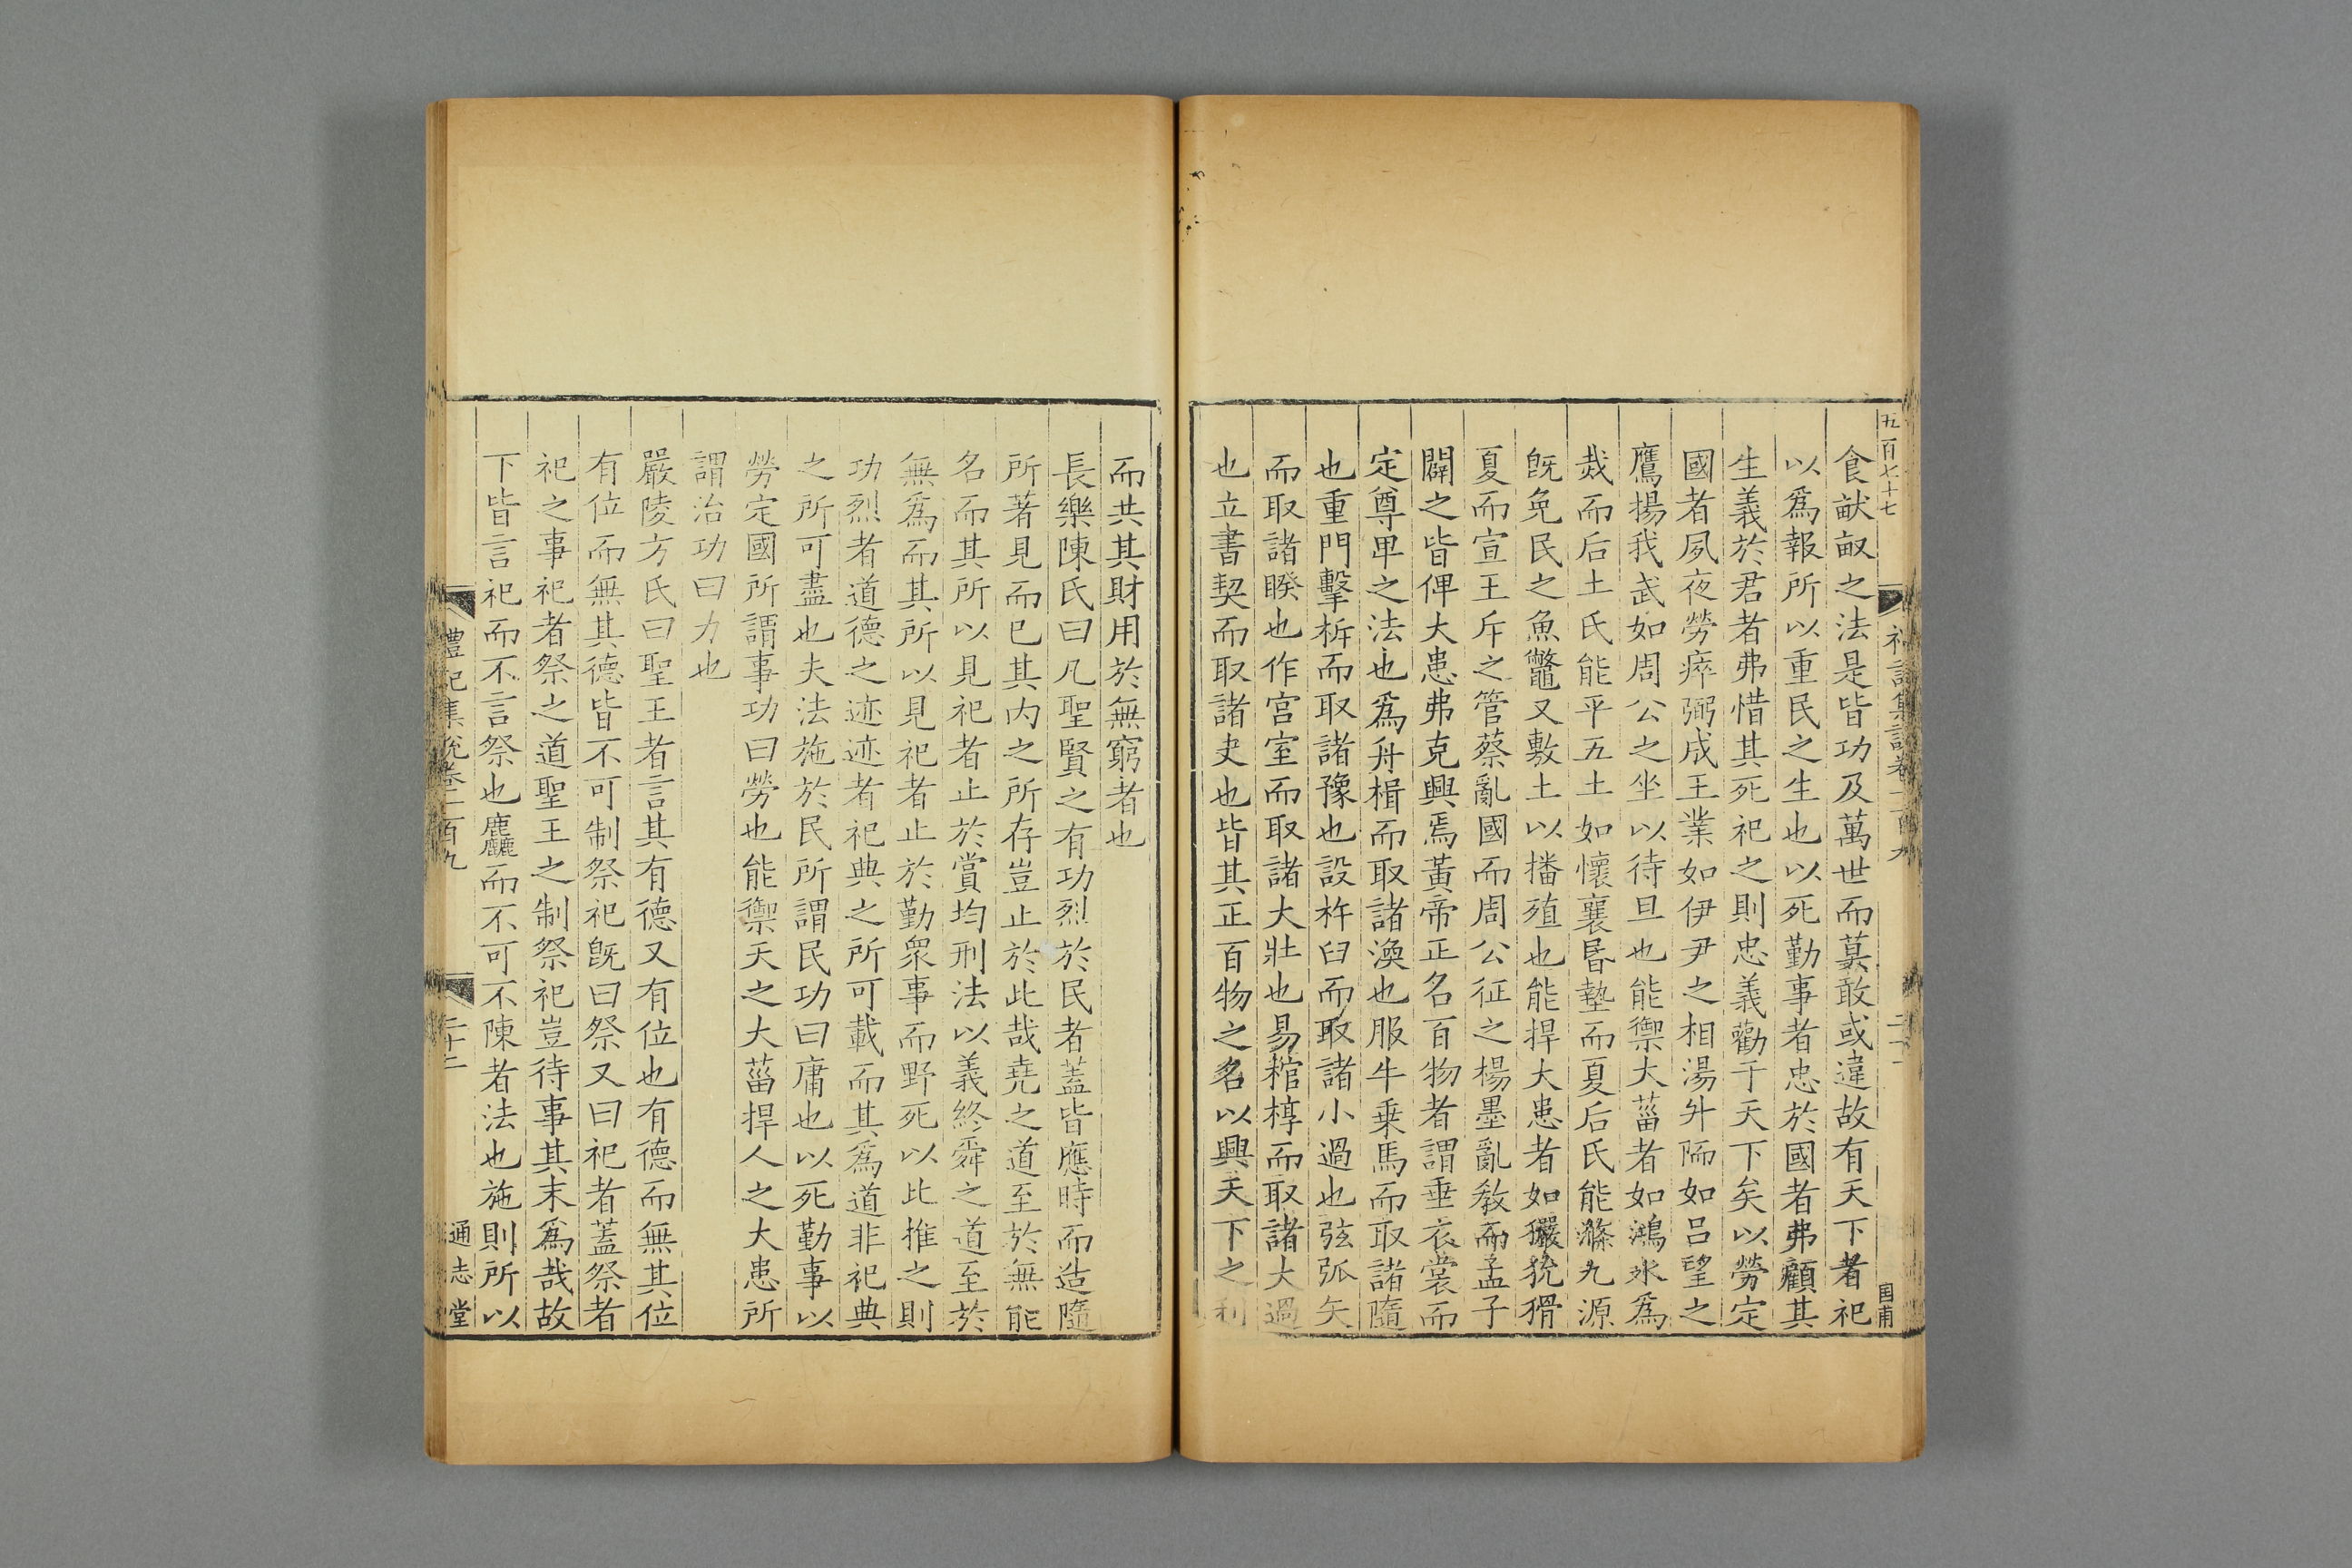 五百七十七
食猷畝之法是皆功及萬世而莫敢或違故有天下者祀
以爲報所以重民之生也以死勤事者忠於國者弗顧其
生義於君者弗惜其死祀之則忠義勸于天下矣以勞定
國者夙夜勞瘁弼成王業如伊尹之相湯升陑如呂望之
鷹揚我武如周公之坐以待旦也能禦大菑者如鴻水爲
烖而后土氏能平五土如懷襄昬墊而夏后氏能滌九源
旣免民之魚鼈又敷土以播殖也能捍大患者如玁狁猾
夏而宣王斥之管蔡亂國而周公征之楊墨亂敎而孟子
闢之皆俾大患弗克興焉黃帝正名百物者謂垂衣裳而
定尊卑之法也爲舟楫而取諸渙也服牛乗馬而取諸隨
也重門擊柝而取諸豫也設杵臼而取諸小過也弦弧矢
而取諸睽也作宮室而取諸大壯也易棺椁而取諸大過
也立書契而取諸夬也皆其正百物之名以興天下之利
而共其財用於無窮者也
長樂陳氏曰凡聖賢之有功烈於民者蓋皆應時而造隨
所著見而已其内之所存豈止於此哉堯之道至於無能
名而其所以見祀者止於賞均刑法以義終舜之道至於
無爲而其所以見祀者止於勤衆事而野死以此推之則
功烈者道德之迹迹者祀典之所可載而其爲道非祀典
之所可盡也夫法施於民所謂民功曰庸也以死勤事以
勞定國所謂事功曰勞也能禦天之大菑捍人之大患所
謂治功曰力也
嚴陵方氏曰聖王者言其有德又有位也有德而無其位
有位而無其德皆不可制祭祀旣曰祭又曰祀者蓋祭者
祀之事祀者祭之道聖王之制祭祀豈待事其末爲哉故
下皆言祀而不言祭也麤而不可不陳者法也施則所以
禮記集說卷一百九
二十二
通志堂